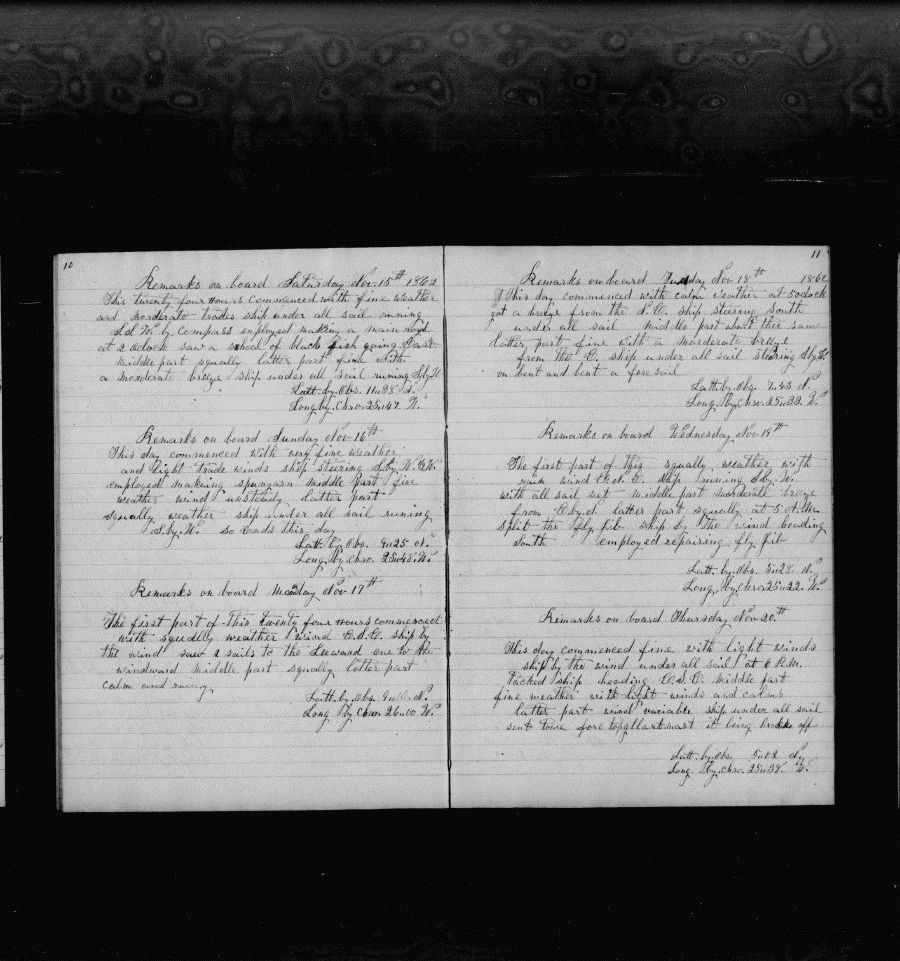 10
Remarks on board Saturday Nov. 15th 1862
This twenty four Hours commenced with fine Weather
and morderate trades ship under all sail runing
S.S.W. by compass employed making a main royd
at 2 oclock saw a school of black fish going East
Middle part squally latter part fine with
a morderate breeze ship under all sail runing S.by.W
Latt. by. Obs. 11..38 N.
Long by. Chro. 25..47. W.
Remarks on board Sunday Nov 16th
This day commenced with very fine weather
and light trade winds ship steering S.by.W.
employed making spunyarn Middle part fine
weather wind unsteady latter part
squally weather ship under all sail runing
S.by.W. so Ends this day
Latt. by. Obs. 9..25 N.
Long. by chro. 25..48. W.
Remarks on board Monday Nov 17th
The first part of This twenty four Hours commenced
with squally weather wind E.S.E. ship by
the wind saw 2 sails to the Leeward one to the
windward middle part squally latter part
calm and rainy
Latt. by. Obs. N.
Long by chro. 26..00 W.
11
Remarks on board Tuesday Nov 18th 1862
This day commenced with calm weather at 5 oclock
got a breeze from the N.E. ship steering South
under all sail Middle part about thee same
latter part fine with a morderate breeze
from the E. ship under all sail steering S.by.W
on bent and bent a fore sail
Latt. by. Obs. 7..43 N.
Long. by Chro. 25..38. W.
Remarks on board Wednesday Nov 19th
The first part of this squally weather with
rain wind E.N.E. ship runing S.by.W.
with all sail set middle part morderate breeze
from E.by.N latter part squally at 5 A.M.
split the fly jib ship by the wind heading
South employed repairing fly jib
Latt. by. Obs. 5..28 N.
Long. by. Chro 25..22. W.
Remarks on board Thursday Nov 20th
This day commenced fine with light winds
ship by the wind under all sail at 6 P.M.
Tacked ship heading E.S.E. Middle part
fine weather with light winds and calms
latter part wind variable ship under all sail
sent town fore topgllartmast it being broke off
Latt. by. Obs. 5..02 N.
Long. by. chro. 25..38. W.